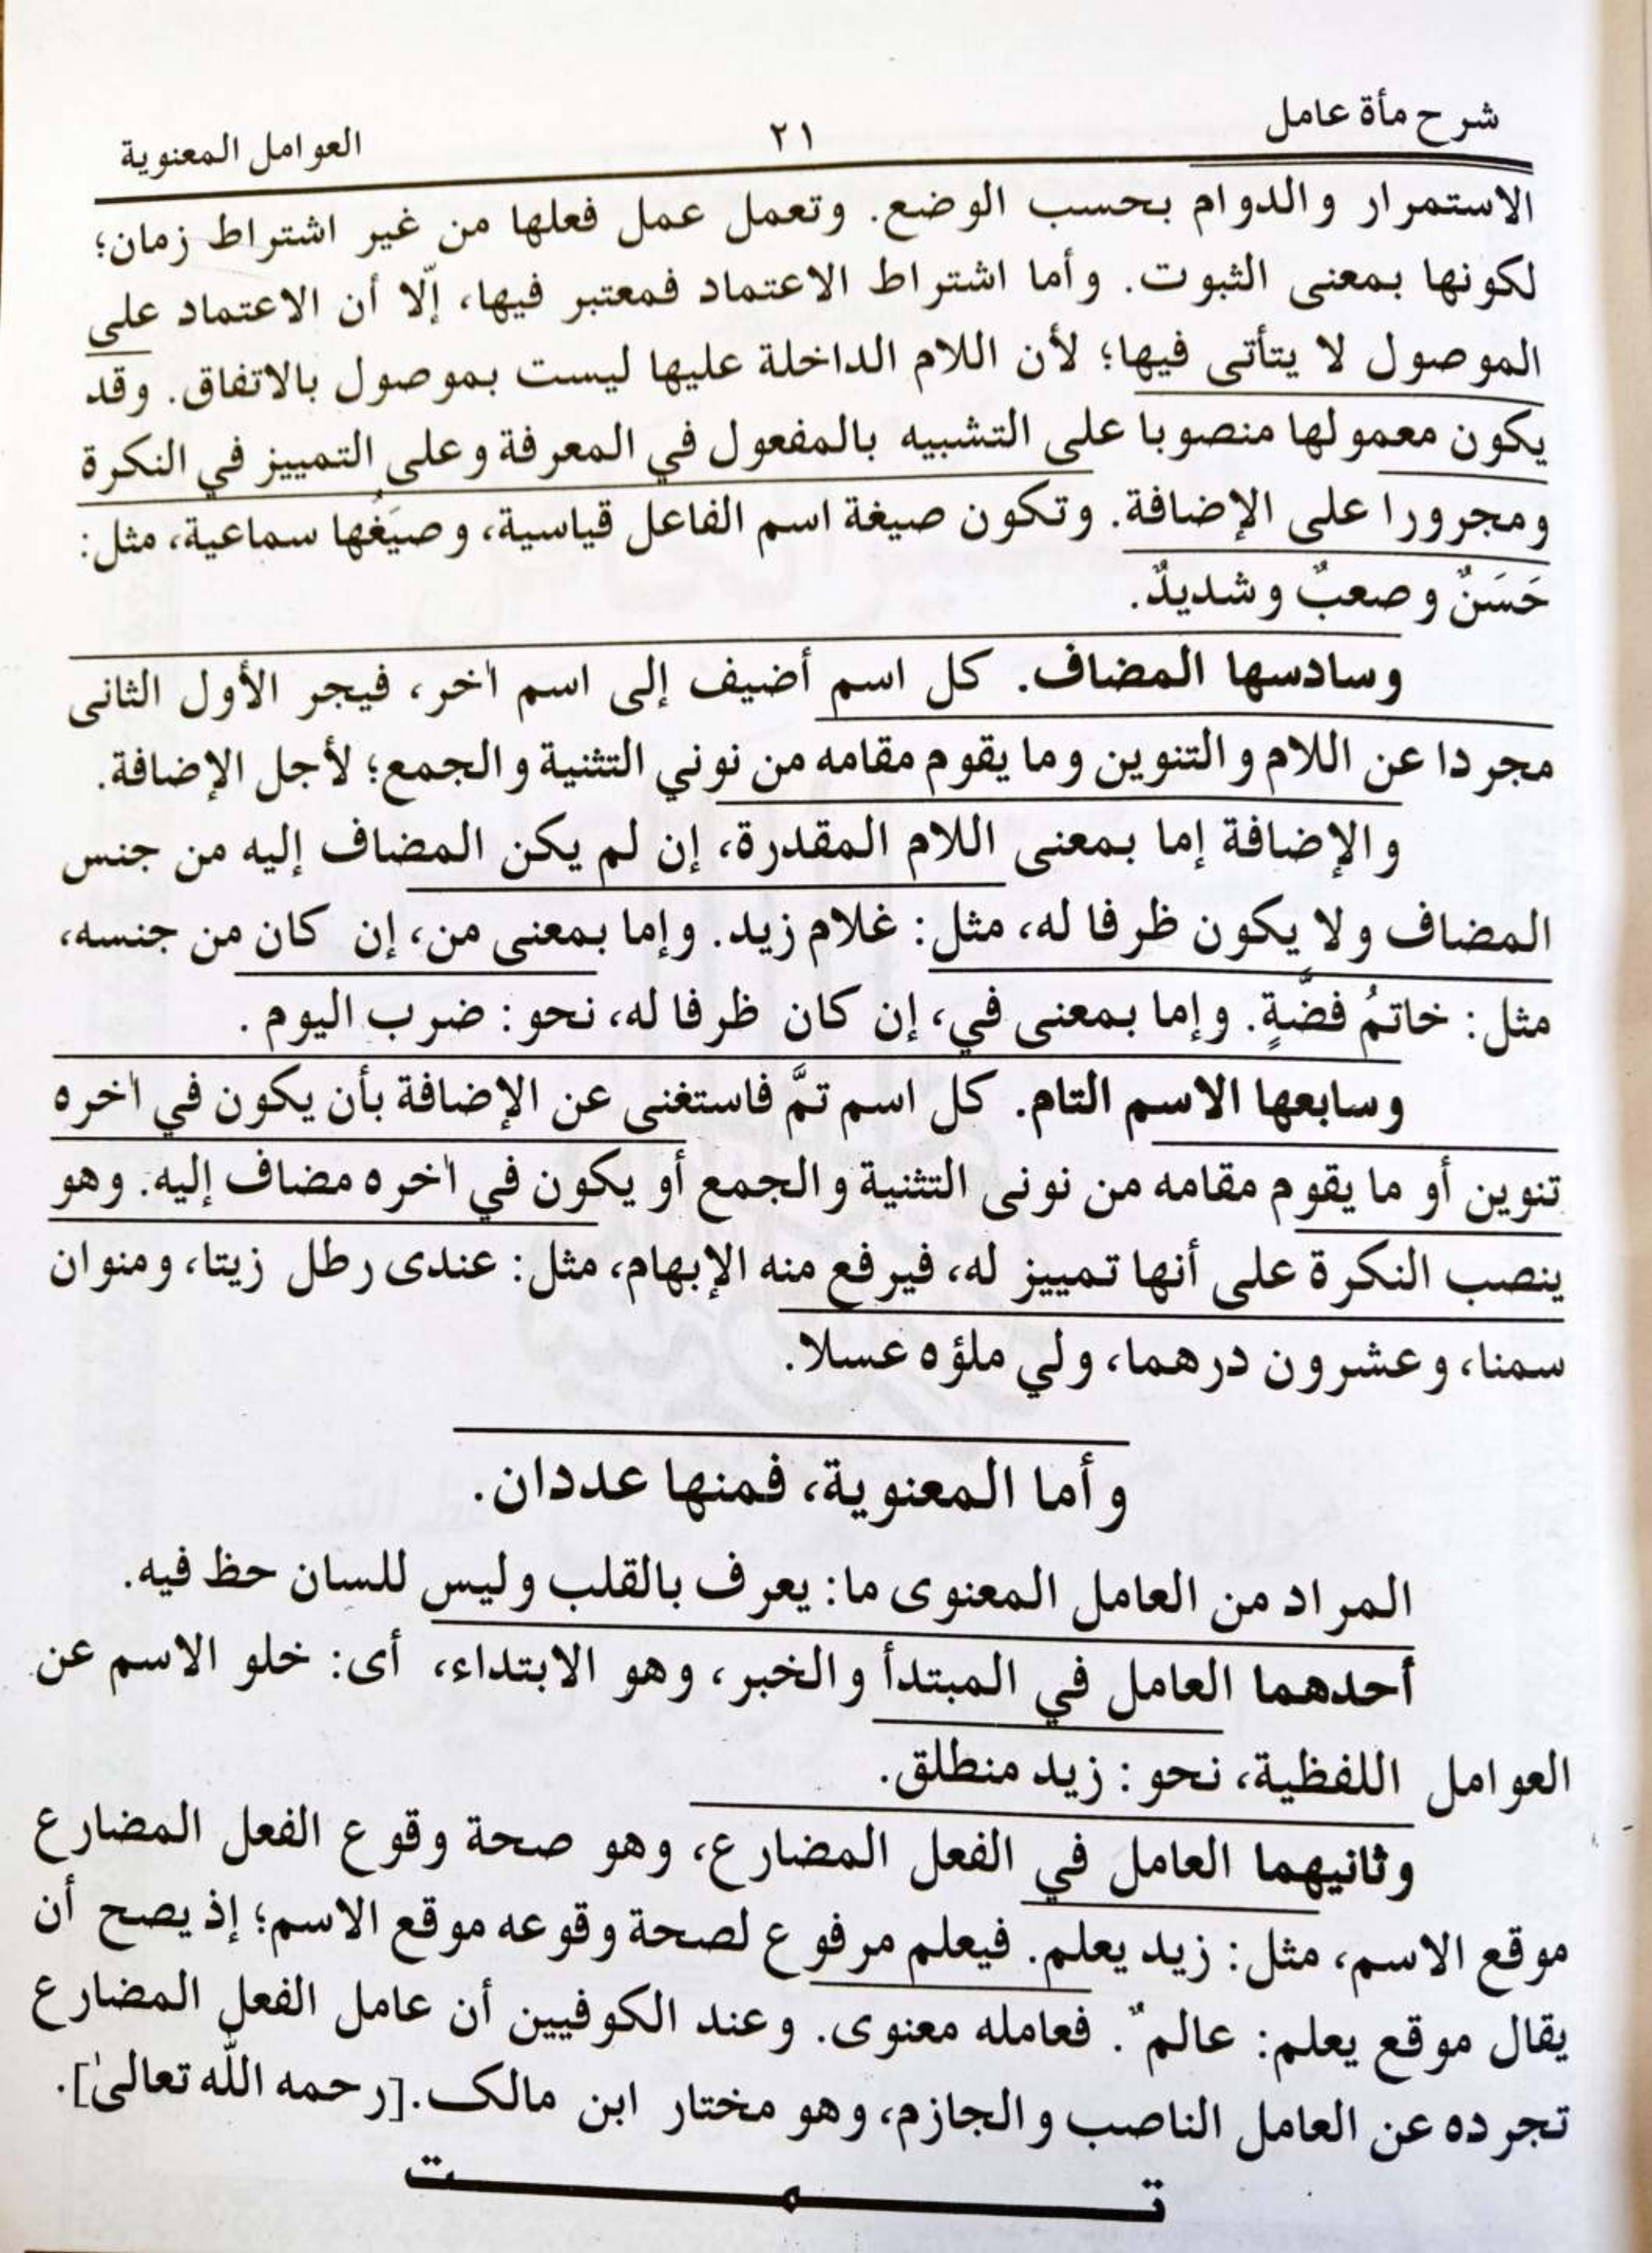 شرح مأة عامل
٢١
العوامل المعنوية
الاستمرار والدوام بحسب الوضع. وتعمل عمل فعلها من غير اشتراط زمان؛
لكونها بمعنى الثبوت. وأما اشتراط الاعتماد فمعتبر فيها، إلّا أن الاعتماد على
الموصول لا يتأتى فيها؛ لأن اللام الداخلة عليها ليست بموصول بالاتفاق. وقد
يكون معمولها منصوبا على التشبيه بالمفعول في المعرفة وعلى التمييز في النكرة
ومجرورا على الإضافة. وتكون صيغة اسم الفاعل قياسية، وصيَغُها سماعية، مثل:
حَسَنٌ وصعبٌ وشديدٌ.
وسادسها المضاف. كل اسم أضيف إلى اسم اٰخر، فيجر الأول الثانى
مجردا عن اللام والتنوين وما يقوم مقامه من نوني التثنية والجمع؛ لأجل الإضافة.
والإضافة إما بمعنى اللام المقدرة، إن لم يكن المضاف إليه من جنس
المضاف ولا يكون ظرفا له، مثل: غلام زيد. وإما بمعنى من، إن كان من جنسه،
مثل: خاتمُ فضَّةٍ. وإما بمعنى في، إن كان ظرفا له، نحو: ضرب اليوم.
وسابعها الاسم التام. كل اسم تمَّ فاستغنى عن الإضافة بأن يكون في اٰخره
تنوين أو ما يقوم مقامه من نونى التثنية والجمع أو يكون في اٰخره مضاف إليه. وهو
ينصب النكرة على أنها تمييز له، فيرفع منه الإبهام، مثل: عندى رطل زيتا، ومنوان
سمنا، وعشرون درهما، ولي ملؤه عسلا.
وأما المعنوية، فمنها عددان.
المراد من العامل المعنوى ما: يعرف بالقلب وليس للسان حظ فيه.
أحدهما العامل في المبتدأ والخبر، وهو الابتداء، أى: خلو الاسم عن
العوامل اللفظية، نحو: زيد منطلق.
وثانيهما العامل في الفعل المضارع، وهو صحة وقوع الفعل المضارع
موقع الاسم، مثل: زيد يعلم. فيعلم مرفوع لصحة وقوعه موقع الاسم؛ إذ يصح أن
يقال موقع يعلم: عالمٌ. فعامله معنوى. وعند الكوفيين أن عامل الفعل المضارع
تجرده عن العامل الناصب والجازم، وهو مختار ابن مالک.[رحمه اللّٰه تعالىٰ].
تمت